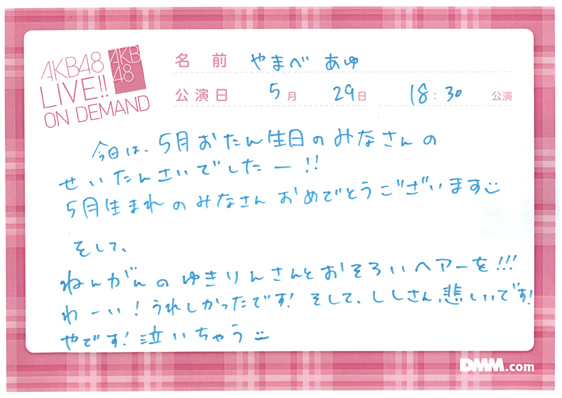 AKB48
LIVE!!
ON DEMAND
AKB
48
名前 やまべ あゆ
公演日 5月 29日 18:30 公演
今日は、5月おたん生日のみなさんの
せいたんさいでしたー!!
5月生まれのみなさん おめでとうございます
そして、
ねんがんのゆきりんさんとおそろいヘアーを!!!
わーい!うれしかったです! そして、ししさん、悲しいです!
やです!泣いちゃう
DMM.com